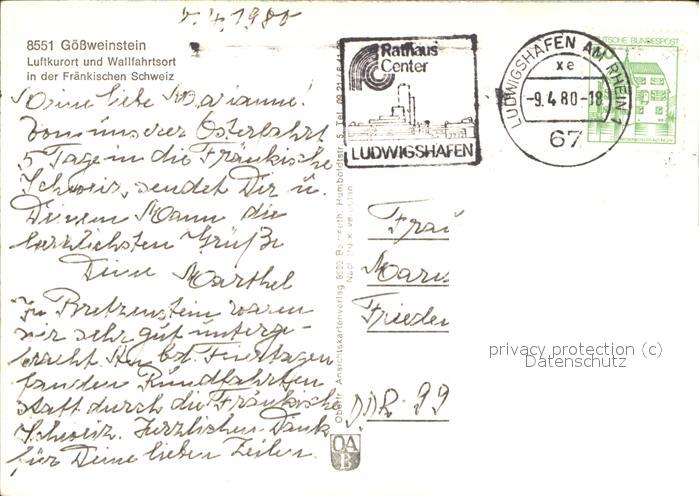 5.4.1980
8551 Gößweinstein
Luftkurort und Wallfahrtsort
in der Fränkischen Schweiz
Meine liebe Marianne!
Von unserer Osterfahrt
5 Tage in die Fränkische
Schweiz, sendet Dir u.
Deinem Mann die
herzlichsten Grüße
Deine Marthel
In Bretzenstein waren
wir sehr gut unterge-
bracht. An bd. Feiertagen
fanden Rundfahrten
statt durch die Fränkische
Schweiz. Herzlichen Dank
für Deine lieben Zeilen.
Rathaus
Center
LUDWIGSHAFEN
LUDWIGSHAFEN AM RHEIN 1
xe
-9.4.80-18
67
DEUTSCHE BUNDESPOST
Frau
Frieden
DDR-99
privacy protection (c)
Datenschutz
OA
B